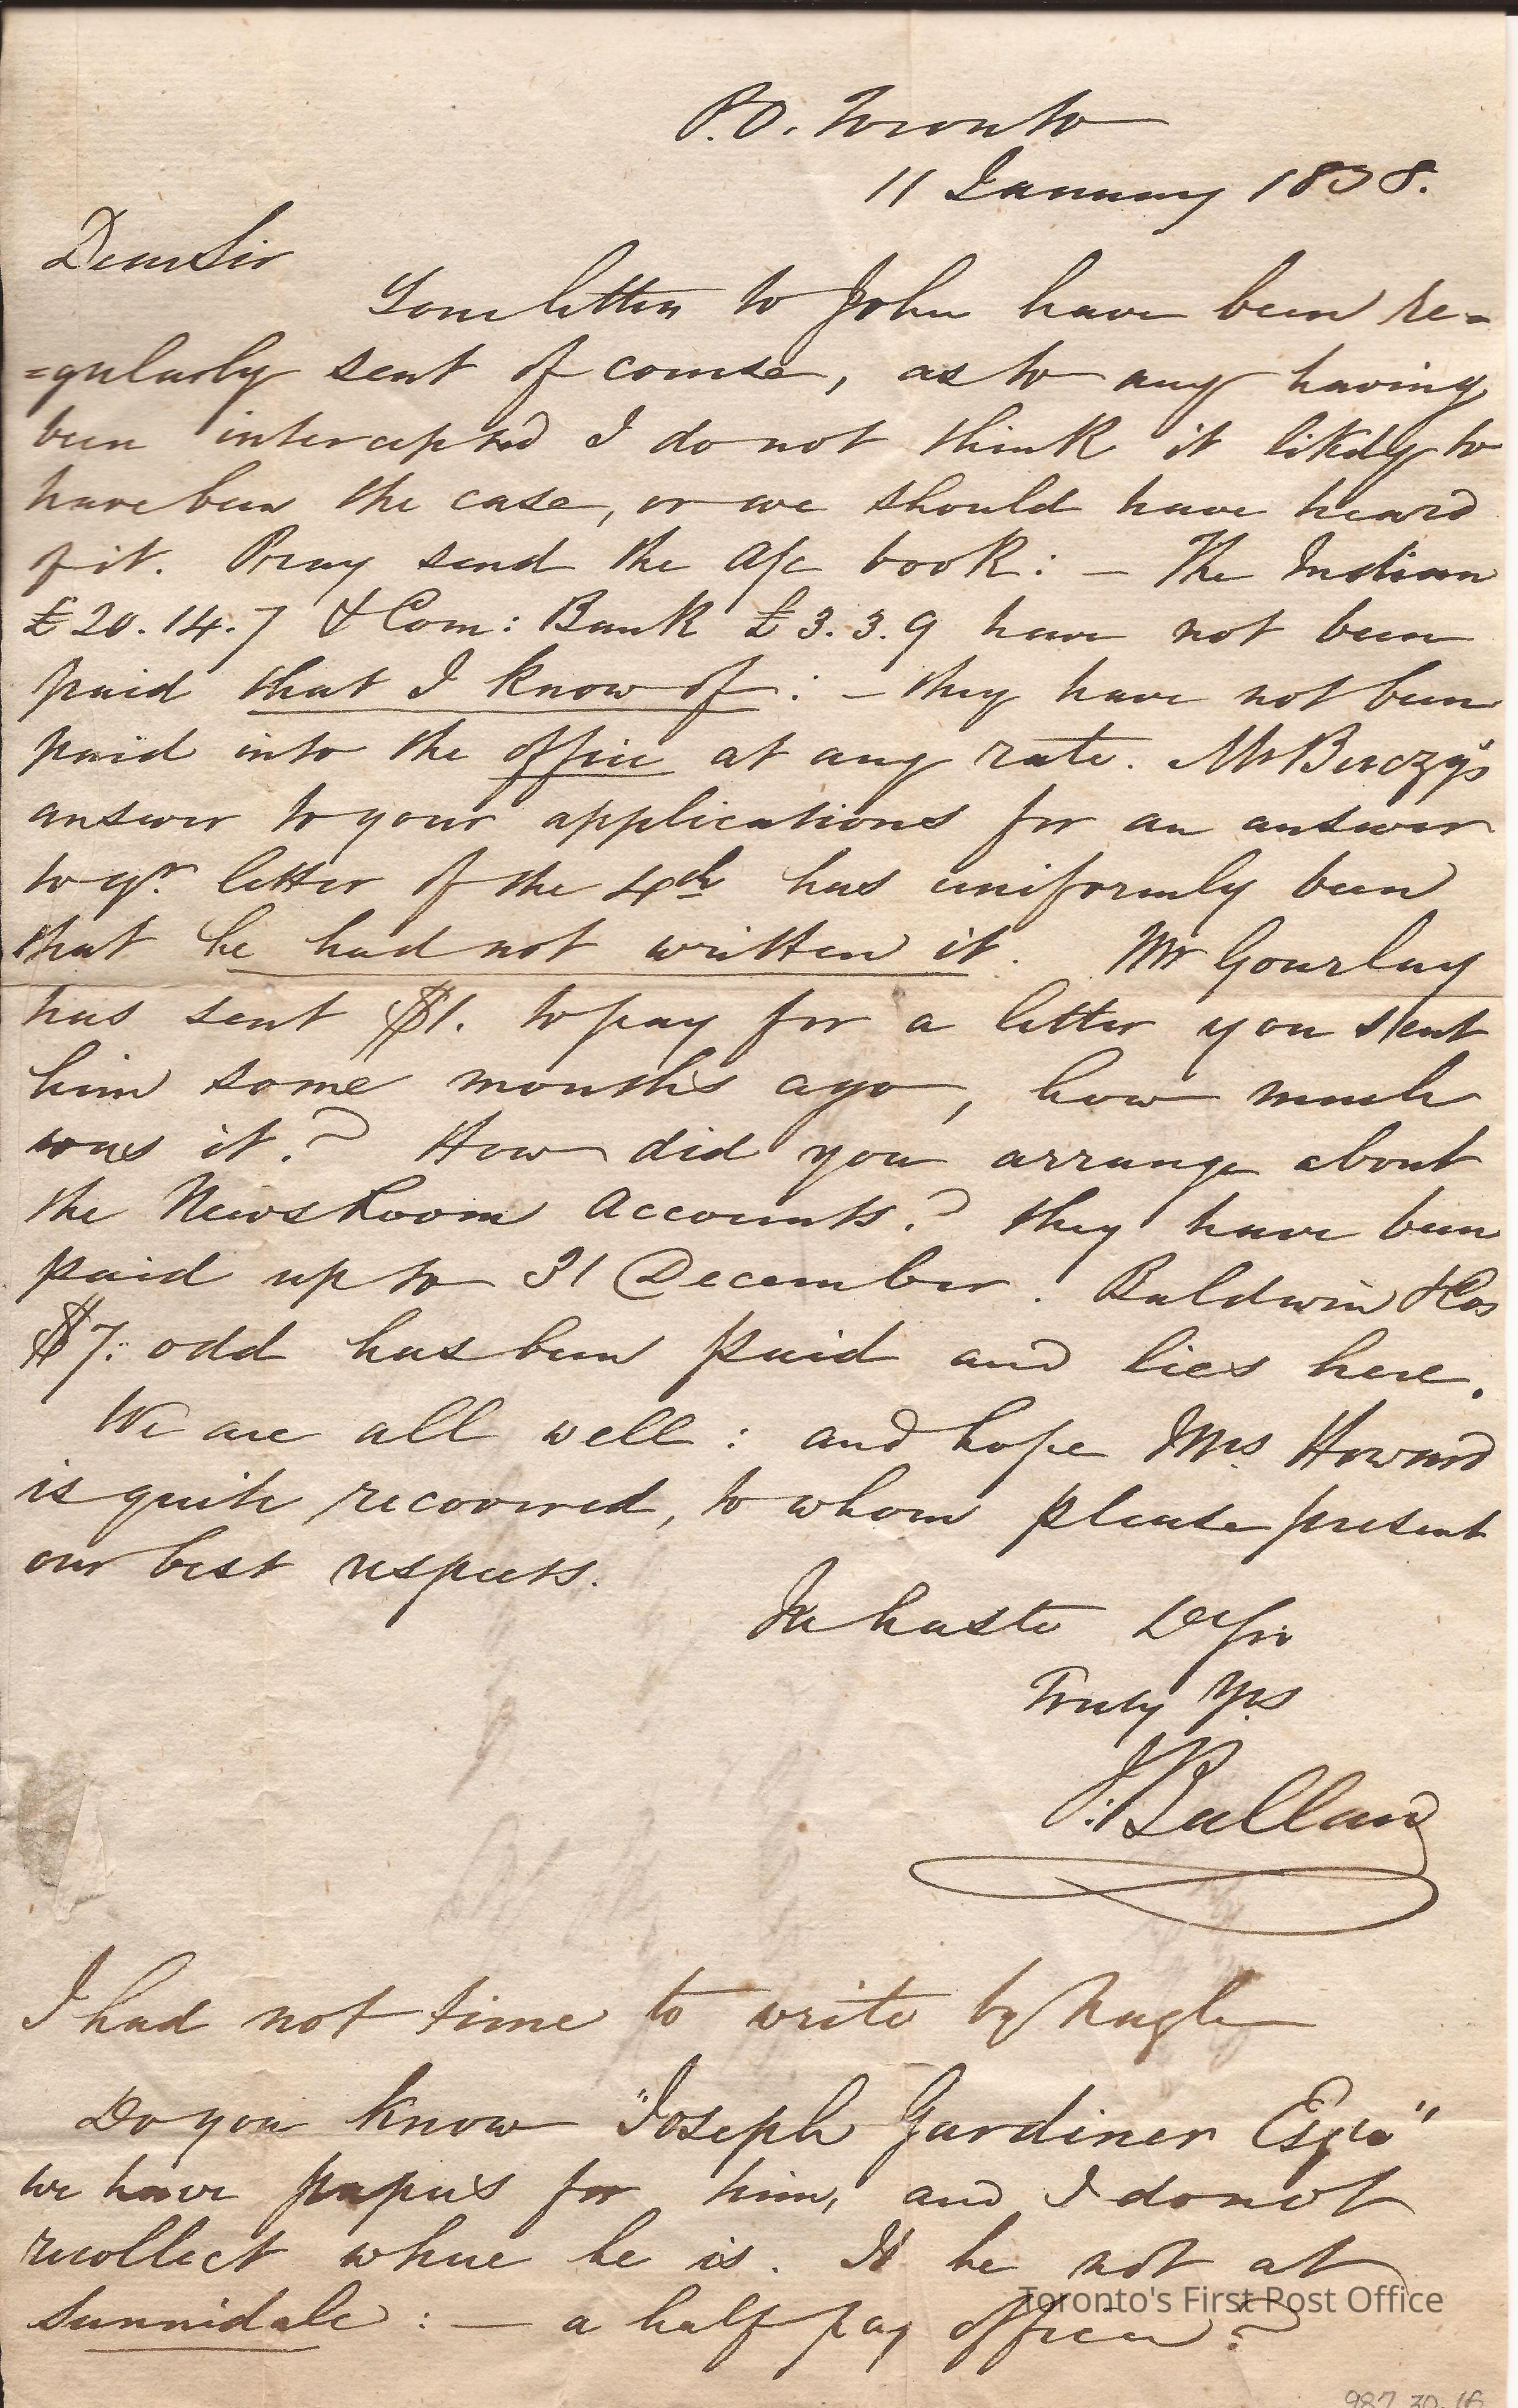 P.O. Toronto
11 January 1838.
Dear Sir
Your letters to John have been re=
=gularly sent of course, as to any having
been intercepted I do not think it likely to
have been the case, or we should have heard
of it. Pray send the a/c book: – The Indian
£20.14.7 & Com: Bank £3.3.9 have not been
paid that I know of: – they have not been
paid into the office at any rate. Mr Berczy's
answer to your applications for an answer
to yr. letter of the 4th has uniformly been
that he had not written it. Mr Gourlay
has sent $1. to pay for a letter you sent
him some months ago, how much
was it.? How did you arrange about
the News Room Accounts.? they have been
paid up to 31 December. Baldwin &Cos
$7: odd has been paid and lies here.
We are all well: and hope Mrs Howard
is quite recovered, to whom please present
our best respects.
In haste Dr Sir
Truly Yrs
J: Ballard
I had not time to write by Nagle
Do you know "Joseph Gardiner Esqre"
we have papers for him, and I do not
recollect where he is. Is he not at
Sunnidale: – a half pay officer?
Toronto's First Post Office
987.30.16